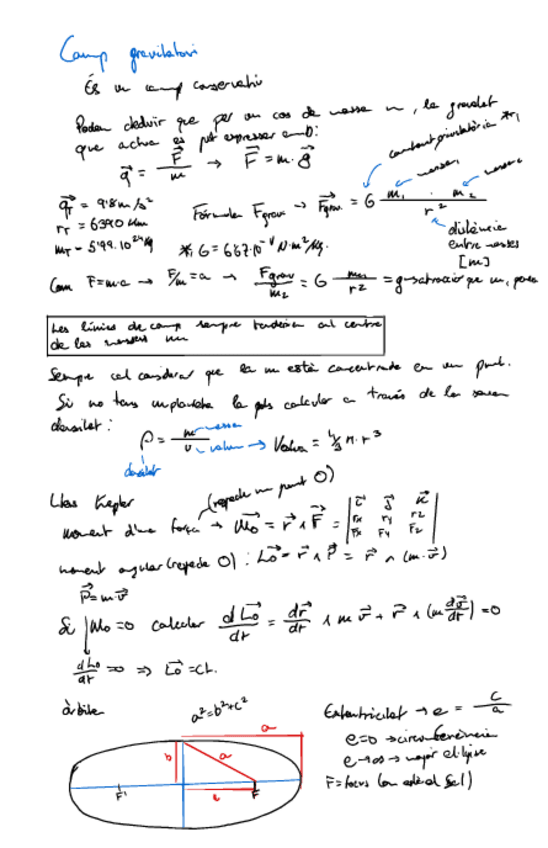 Camp gravitatori
És un camp conservatiu
Podem deduir que per un cos de massa m, la gravetat
que actua es pot expressar amb:
g⃗ = F⃗/m → F⃗ = m·g⃗
constant gravitatòria *1
massa1
massa2
g⃗T = 9'8 m/s²
rT = 6370 km
mT = 5'99·10²⁴ kg
Fórmula Fgrav → F⃗grav. = G m1 · m2 / r²
distància
entre masses
[m]
*1 G = 6'67·10⁻¹¹ N·m²/kg.
Com F=m·a → F/m = a → Fgrav/m2 = G m1/r² = g
Les línies de camp sempre tendeixen al centre
de les masses
Sempre cal considerar que la m està concentrada en un punt.
Si no tens la pots calcular a través de la seva
densitat:
ρ = m/v
massa
volum → Volum = 4/3 π·r³
densitat
Lleis Kepler
(respecte un punt O)
moment d'una força → M⃗o = r⃗ ∧ F⃗ = | i⃗ j⃗ k⃗ |
| rx ry rz |
| Fx Fy Fz |
moment angular (respecte O): L⃗o = r⃗ ∧ P⃗ = r⃗ ∧ (m·v⃗)
P⃗ = m·v⃗
Si Mo = 0 calcular dL⃗o/dt = dr⃗/dt ∧ m v⃗ + r⃗ ∧ (m dv⃗/dt) = 0
dLo/dt = 0 ⇒ L⃗o = ct.
òrbites
a² = b² + c²
Excentricitat → e = c/a
e=0 → circumferència
e→∞ → major el·lipse
F = focus (on està el Sol)
a
b
a
c
F'
F